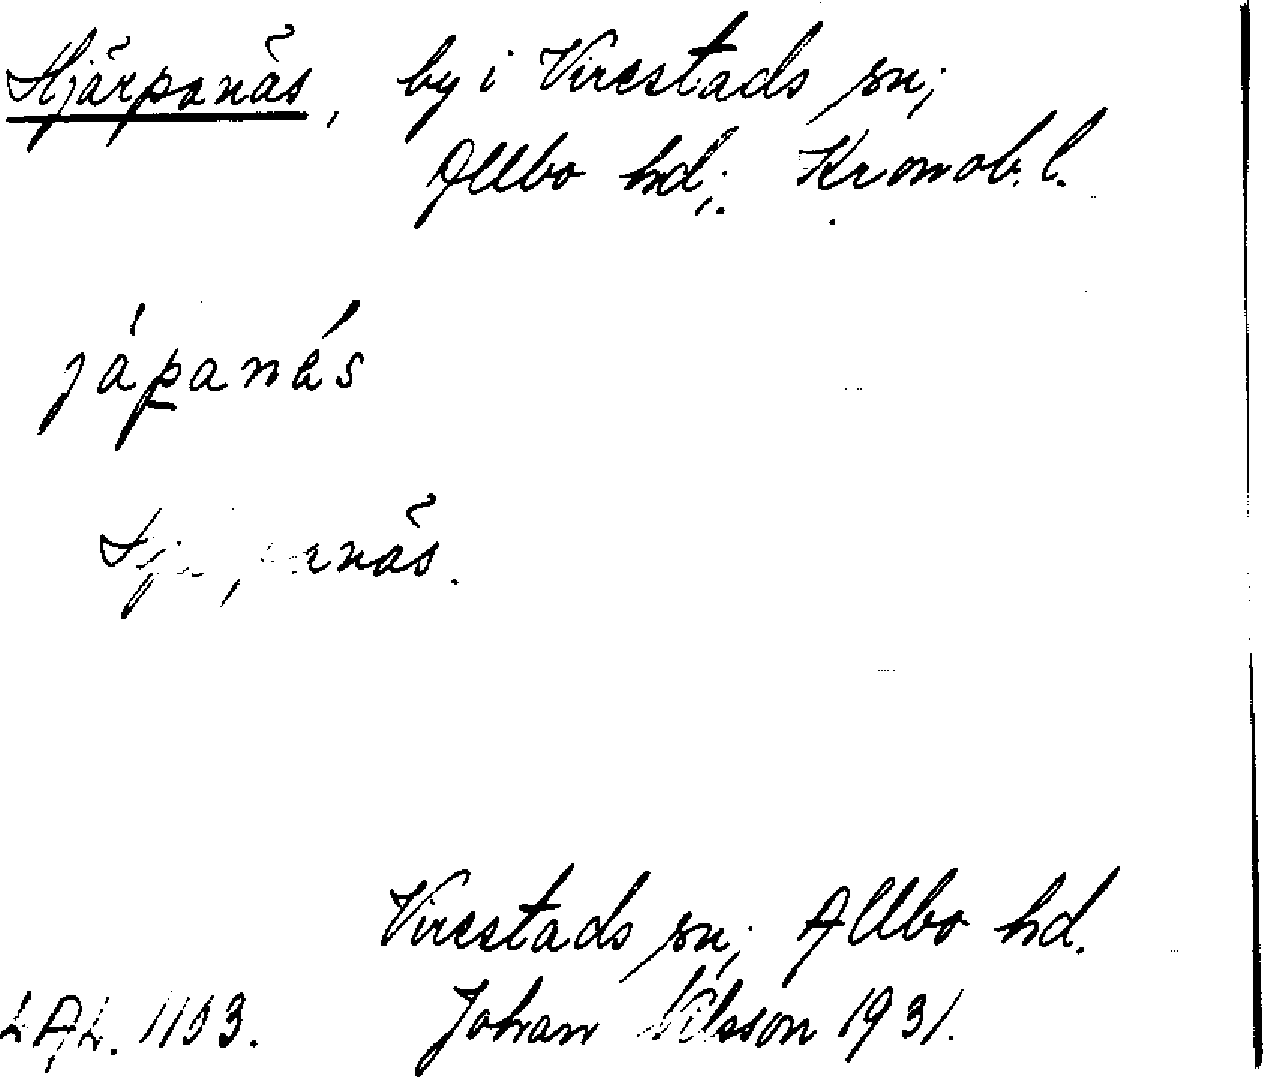 Hjärpanäs, by i Virestads sn;
Allbo hd; Kronob. l.
jápanás
Virestads sn; Allbo hd.
LAL. 1193. Johan Nilsson 1931.